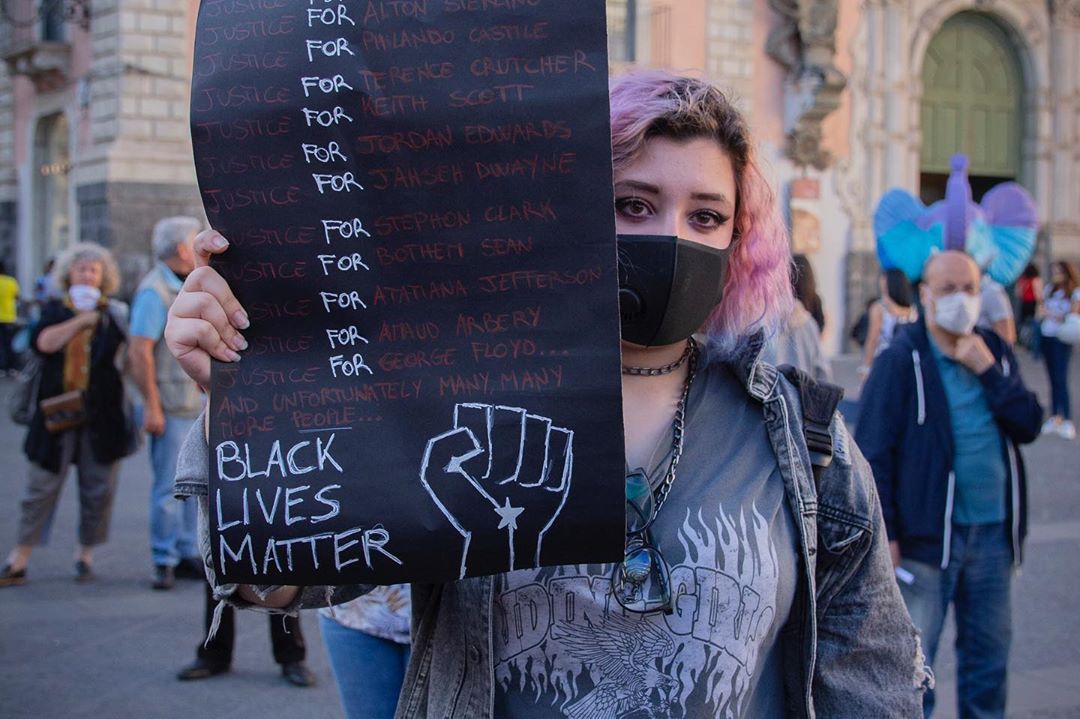 JUSTICE FOR ALTON STERLING
JUSTICE FOR PHILANDO CASTILE
JUSTICE FOR TERENCE CRUTCHER
JUSTICE FOR KEITH SCOTT
JUSTICE FOR JORDAN EDWARDS
JUSTICE FOR JAHSEH DWAYNE
JUSTICE FOR STEPHON CLARK
JUSTICE FOR BOTHEM SEAN
JUSTICE FOR ATATIANA JEFFERSON
JUSTICE FOR AMAUD ARBERY
JUSTICE FOR GEORGE FLOYD...
AND UNFORTUNATELY MANY, MANY
MORE PEOPLE...
BLACK
LIVES
MATTER